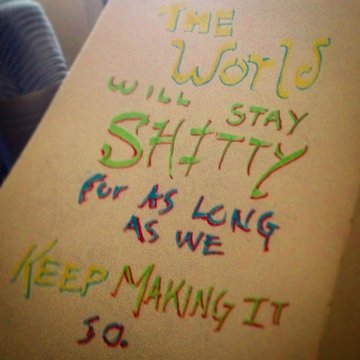 THE
World
WILL STAY
SHITTY
FOR AS LONG
AS WE
KEEP MAKING IT
SO.